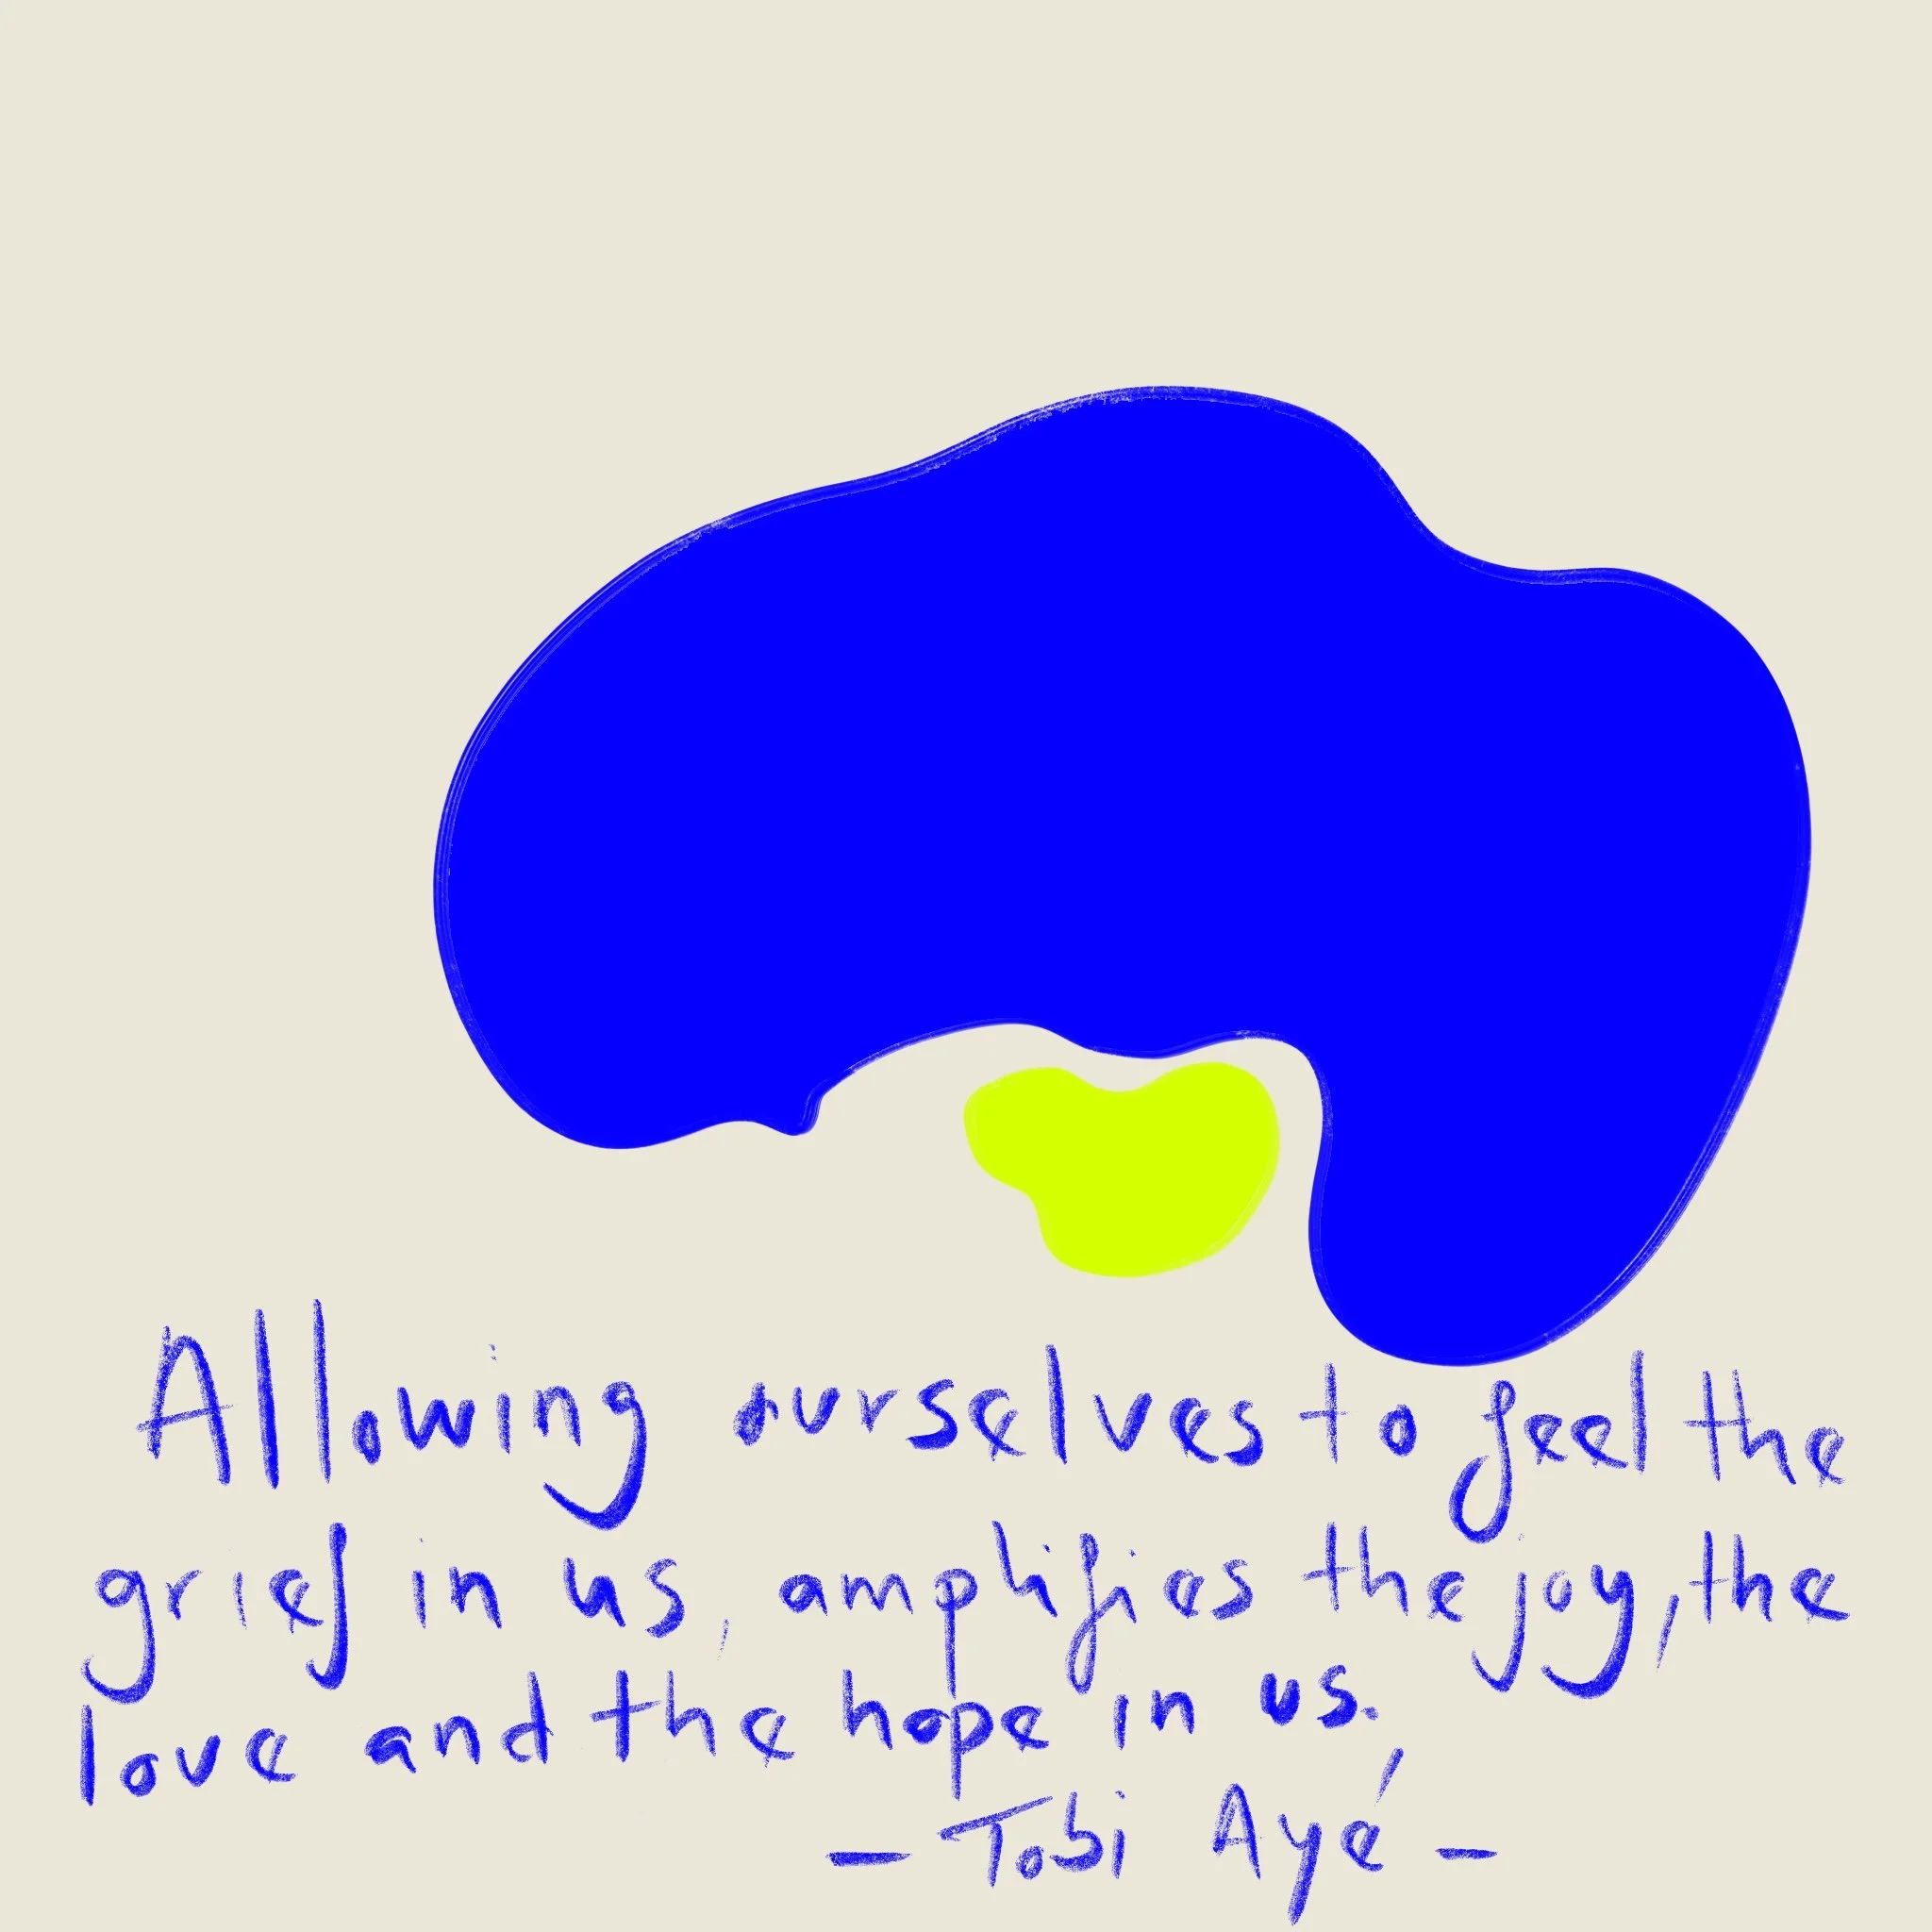 Allowing ourselves to feel the
grief in us, amplifies the joy, the
love and the hope in us.
- Tobi Ayé -